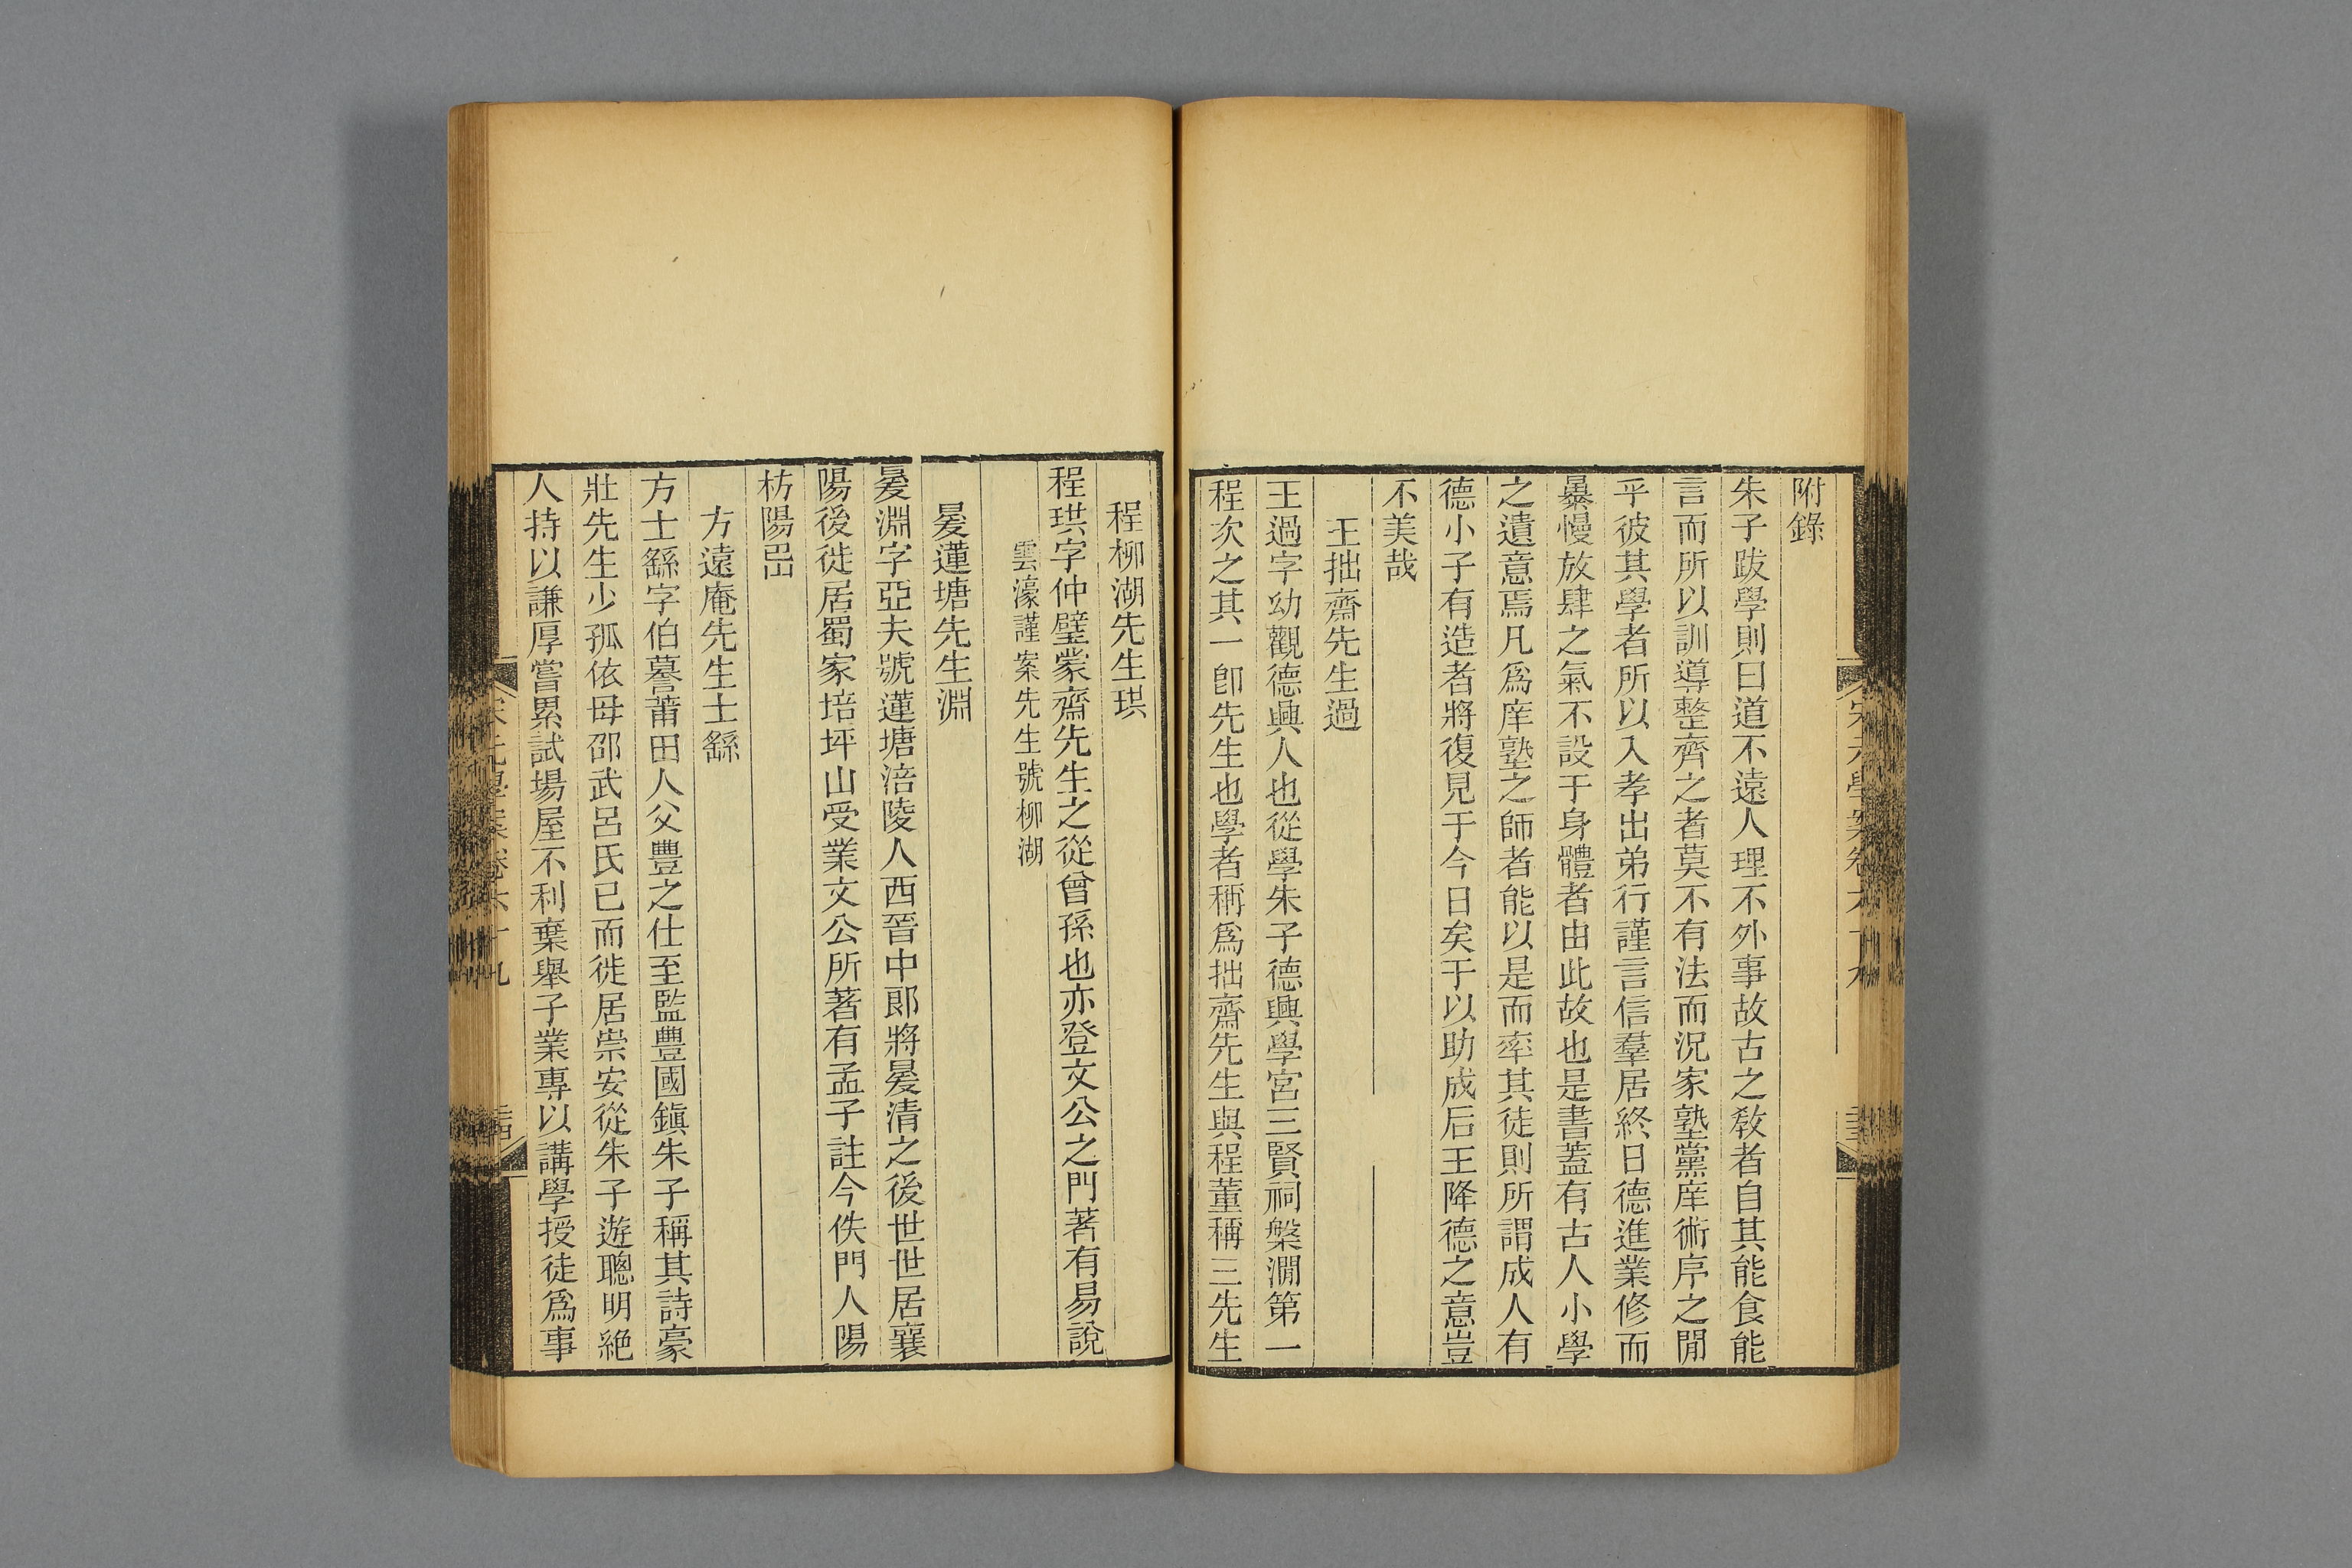 附錄
朱子跋學則曰道不遠人理不外事故古之敎者自其能食能
言而所以訓導整齊之者莫不有法而況家塾黨庠術序之閒
乎彼其學者所以入孝出弟行謹言信羣居終日德進業修而
暴慢放肆之氣不設于身體者由此故也是書蓋有古人小學
之遺意焉凡爲庠塾之師者能以是而率其徒則所謂成人有
德小子有造者將復見于今日矣于以助成后王降德之意豈
不美哉
王拙齋先生過
王過字幼觀德興人也從學朱子德興學宮三賢祠槃澗第一
程次之其一卽先生也學者稱爲拙齋先生與程董稱三先生
程柳湖先生珙
程珙字仲璧蒙齋先生之從曾孫也亦登文公之門著有易說
雲濠謹案先生號柳湖
㬊蓮塘先生淵
㬊淵字亞夫號蓮塘涪陵人西晉中郎將㬊清之後世世居襄
陽後徙居蜀家培坪山受業文公所著有孟子註今佚門人陽
枋陽岊
方遠庵先生士繇
方士繇字伯謩莆田人父豐之仕至監豐國鎭朱子稱其詩豪
壯先生少孤依母邵武呂氏已而徙居崇安從朱子遊聰明絕
人持以謙厚嘗累試場屋不利棄舉子業專以講學授徒爲事